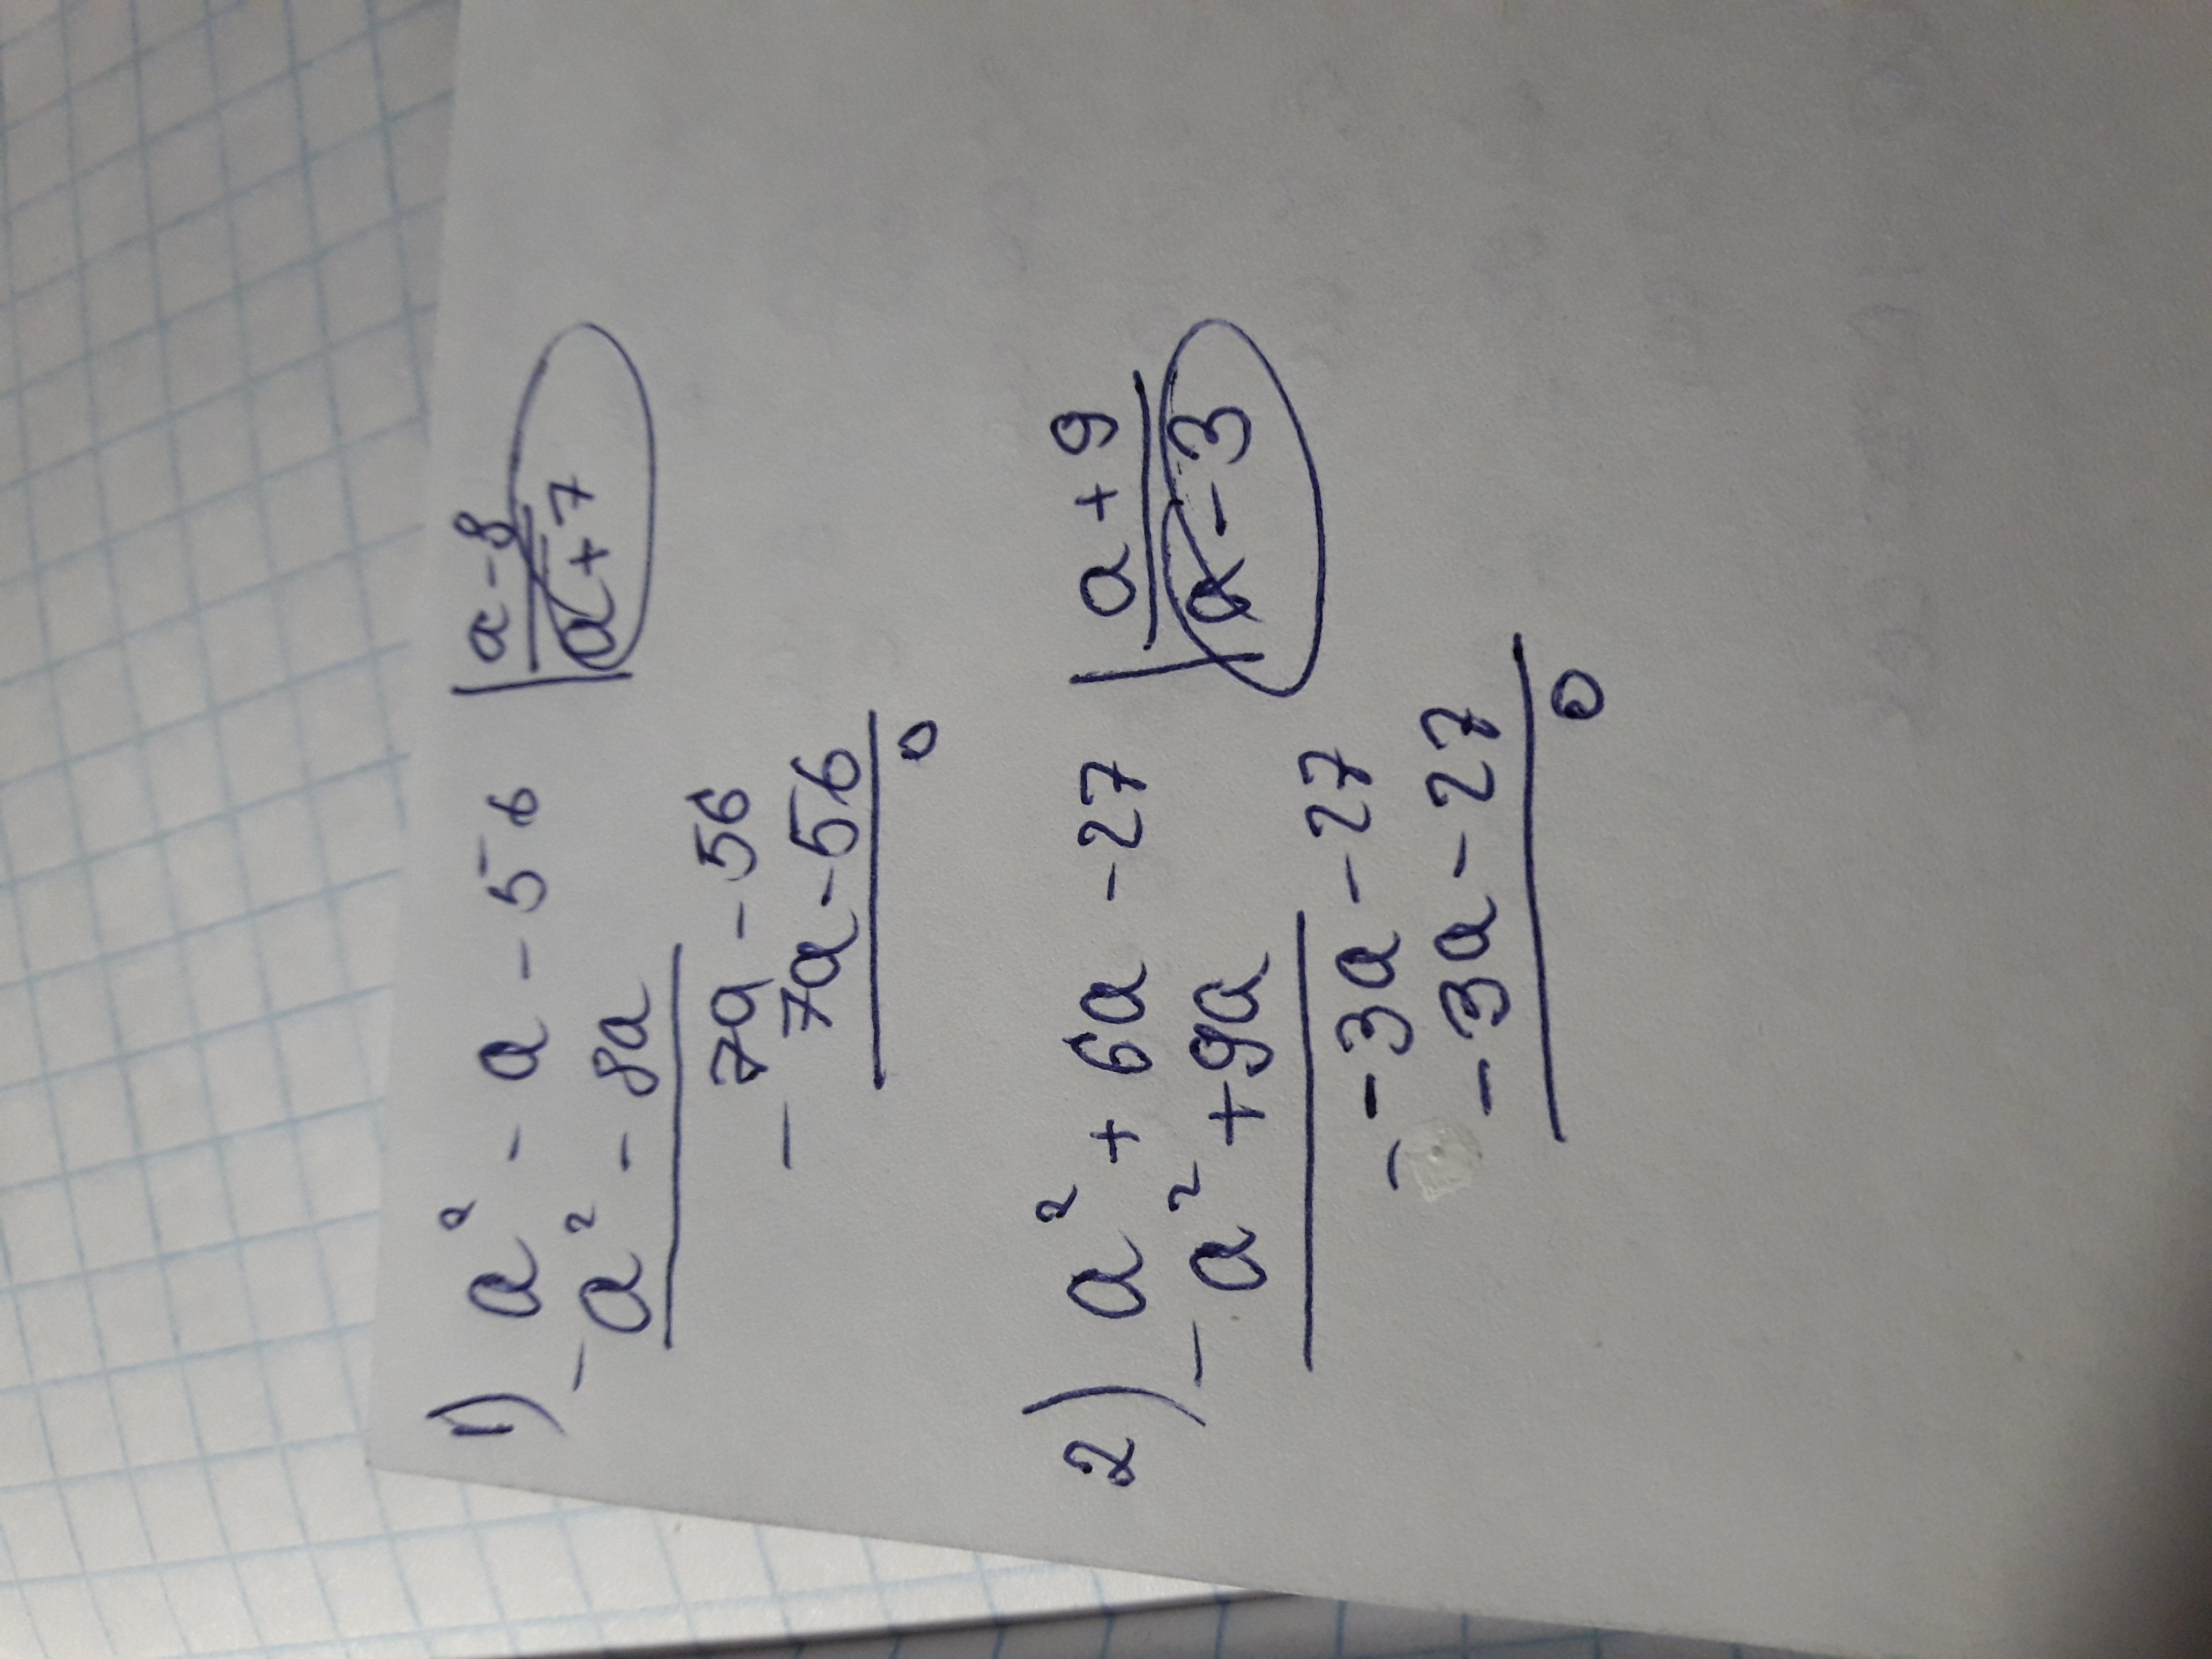 1) a² - a - 56 | a - 8
- a² - 8a | a + 7
7a - 56
- 7a - 56
0
2) a² + 6a - 27 | a + 9
- a² + 9a | a - 3
- -3a - 27
-3a - 27
0